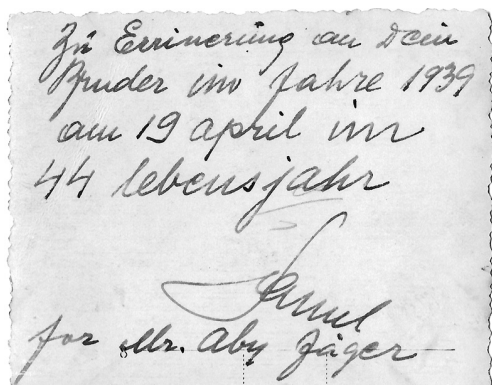 Zu Errinerung an Dein
Bruder im Jahre 1939
am 19 april im
44 lebensjahr
Samuel
for Mr. Aby Jäger